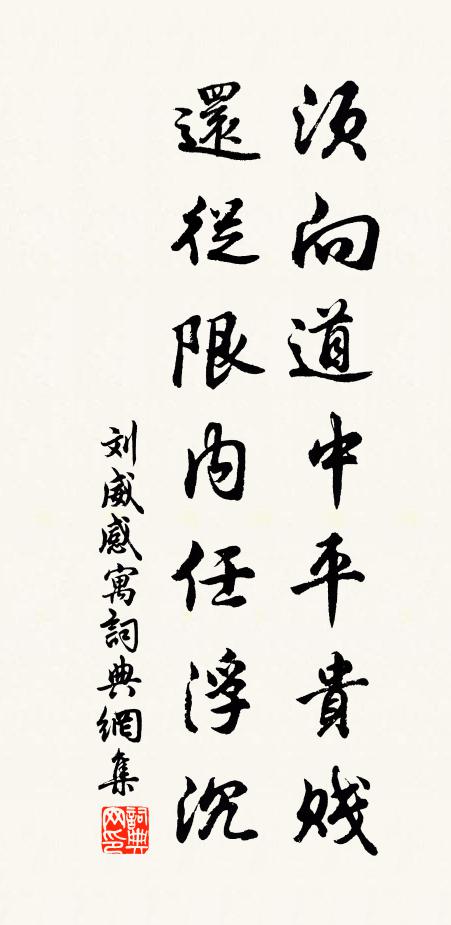 须向道中平貴贱
還從限内任浮沉
刘威感寓詞典網集
詞典網印